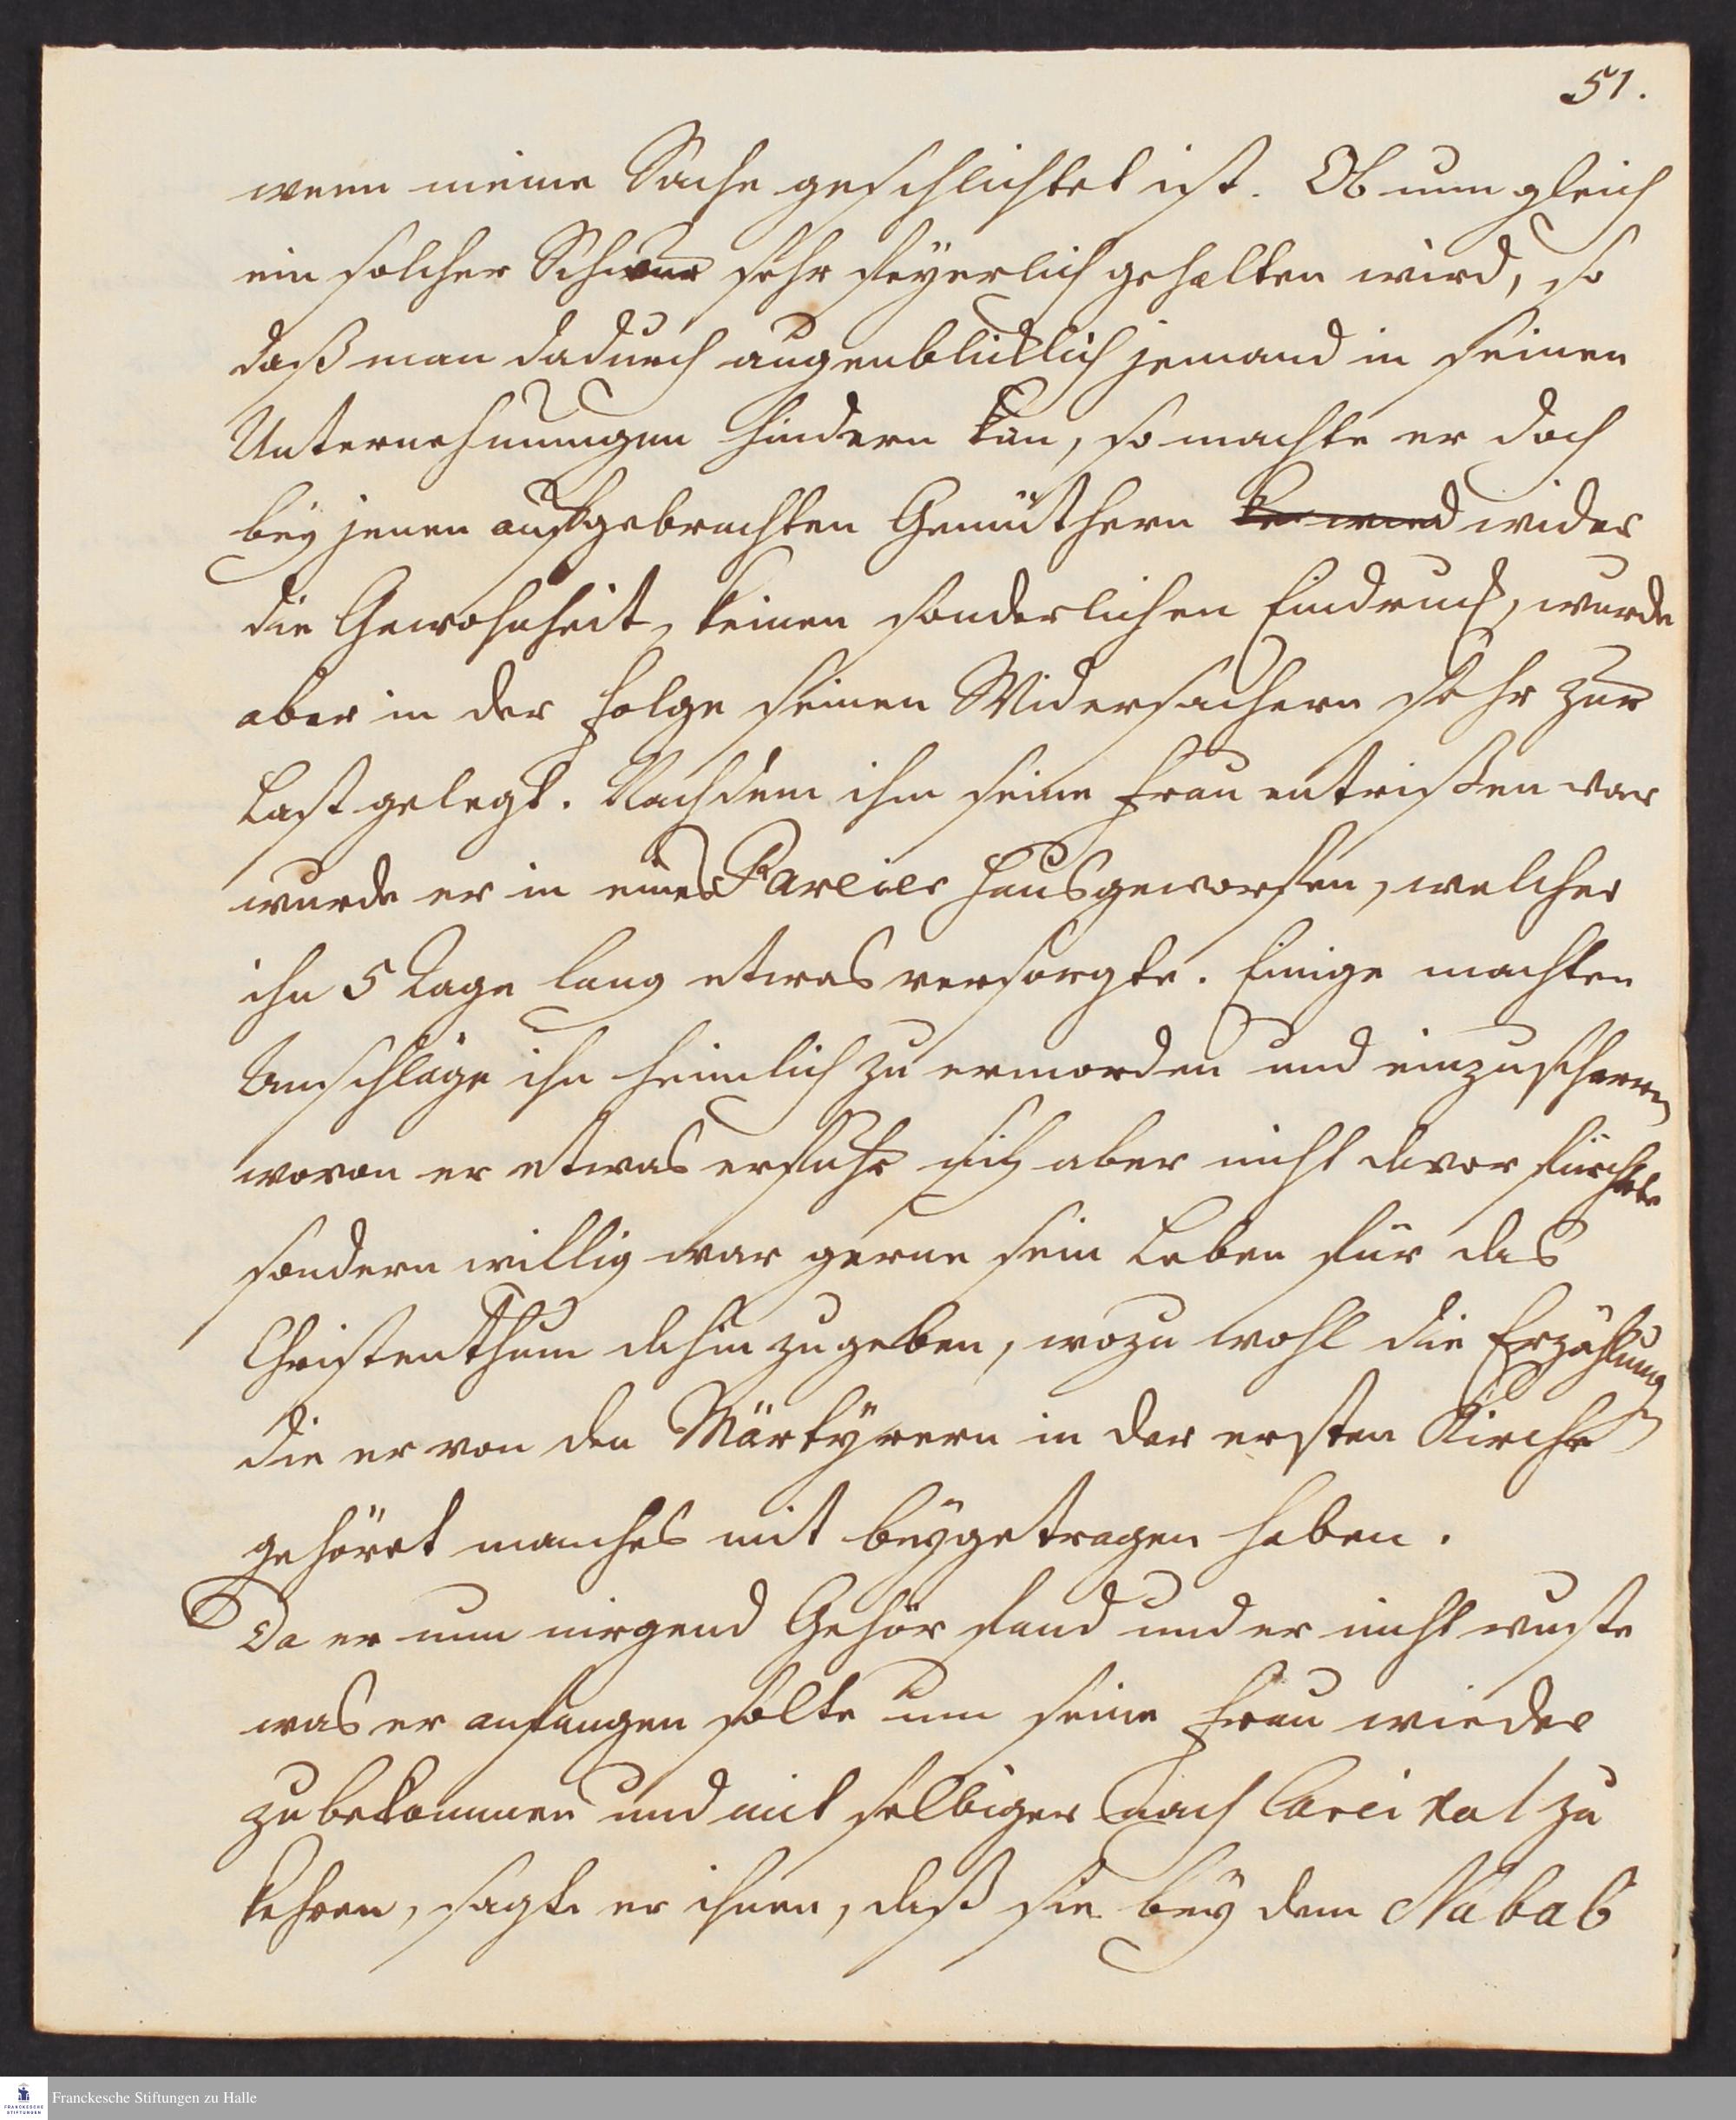 51.
wenn meine Sache geschlichtet ist. Ob nun gleich
ein solcher Schwur sehr feyerlich gehalten wird, so
daß man dadurch augenblicklich jemand in seinen
Unternehmungen hindern kan, so machte er doch
bey jenen aufgebrachten Gemüthern wider
die Gewohnheit, keinen sonderlichen Eindruck, wurde
aber in der Folge seinen Widersachern sehr zur
Last gelegt. Nachdem ihm seine Frau entrißen war
wurde er in eines Pareier Haus geworfen, welcher
ihn 5 Tage lang etwas versorgte. Einige machten
Anschläge ihn heimlich zu ermorden und einzuscharren
wovon er etwas erfuhr sich aber nicht davor fürchtete
sondern willig war gerne sein Leben für das
Christenthum dahin zu geben, wozu wohl die Erzählungen
die er von den Märtyrern in der ersten Kirche
gehöret manches mit beygetragen haben.
Da er nun nirgend Gehör fand und er nicht wuste
was er anfangen solte um seine Frau wieder
zu bekommen und mit selbiger nach Careikal zu
kehren, sagte er ihnen, daß sie bey dem Nabab
Franckesche Stiftungen zu Halle
FRANCKESCHE
STIFTUNGEN